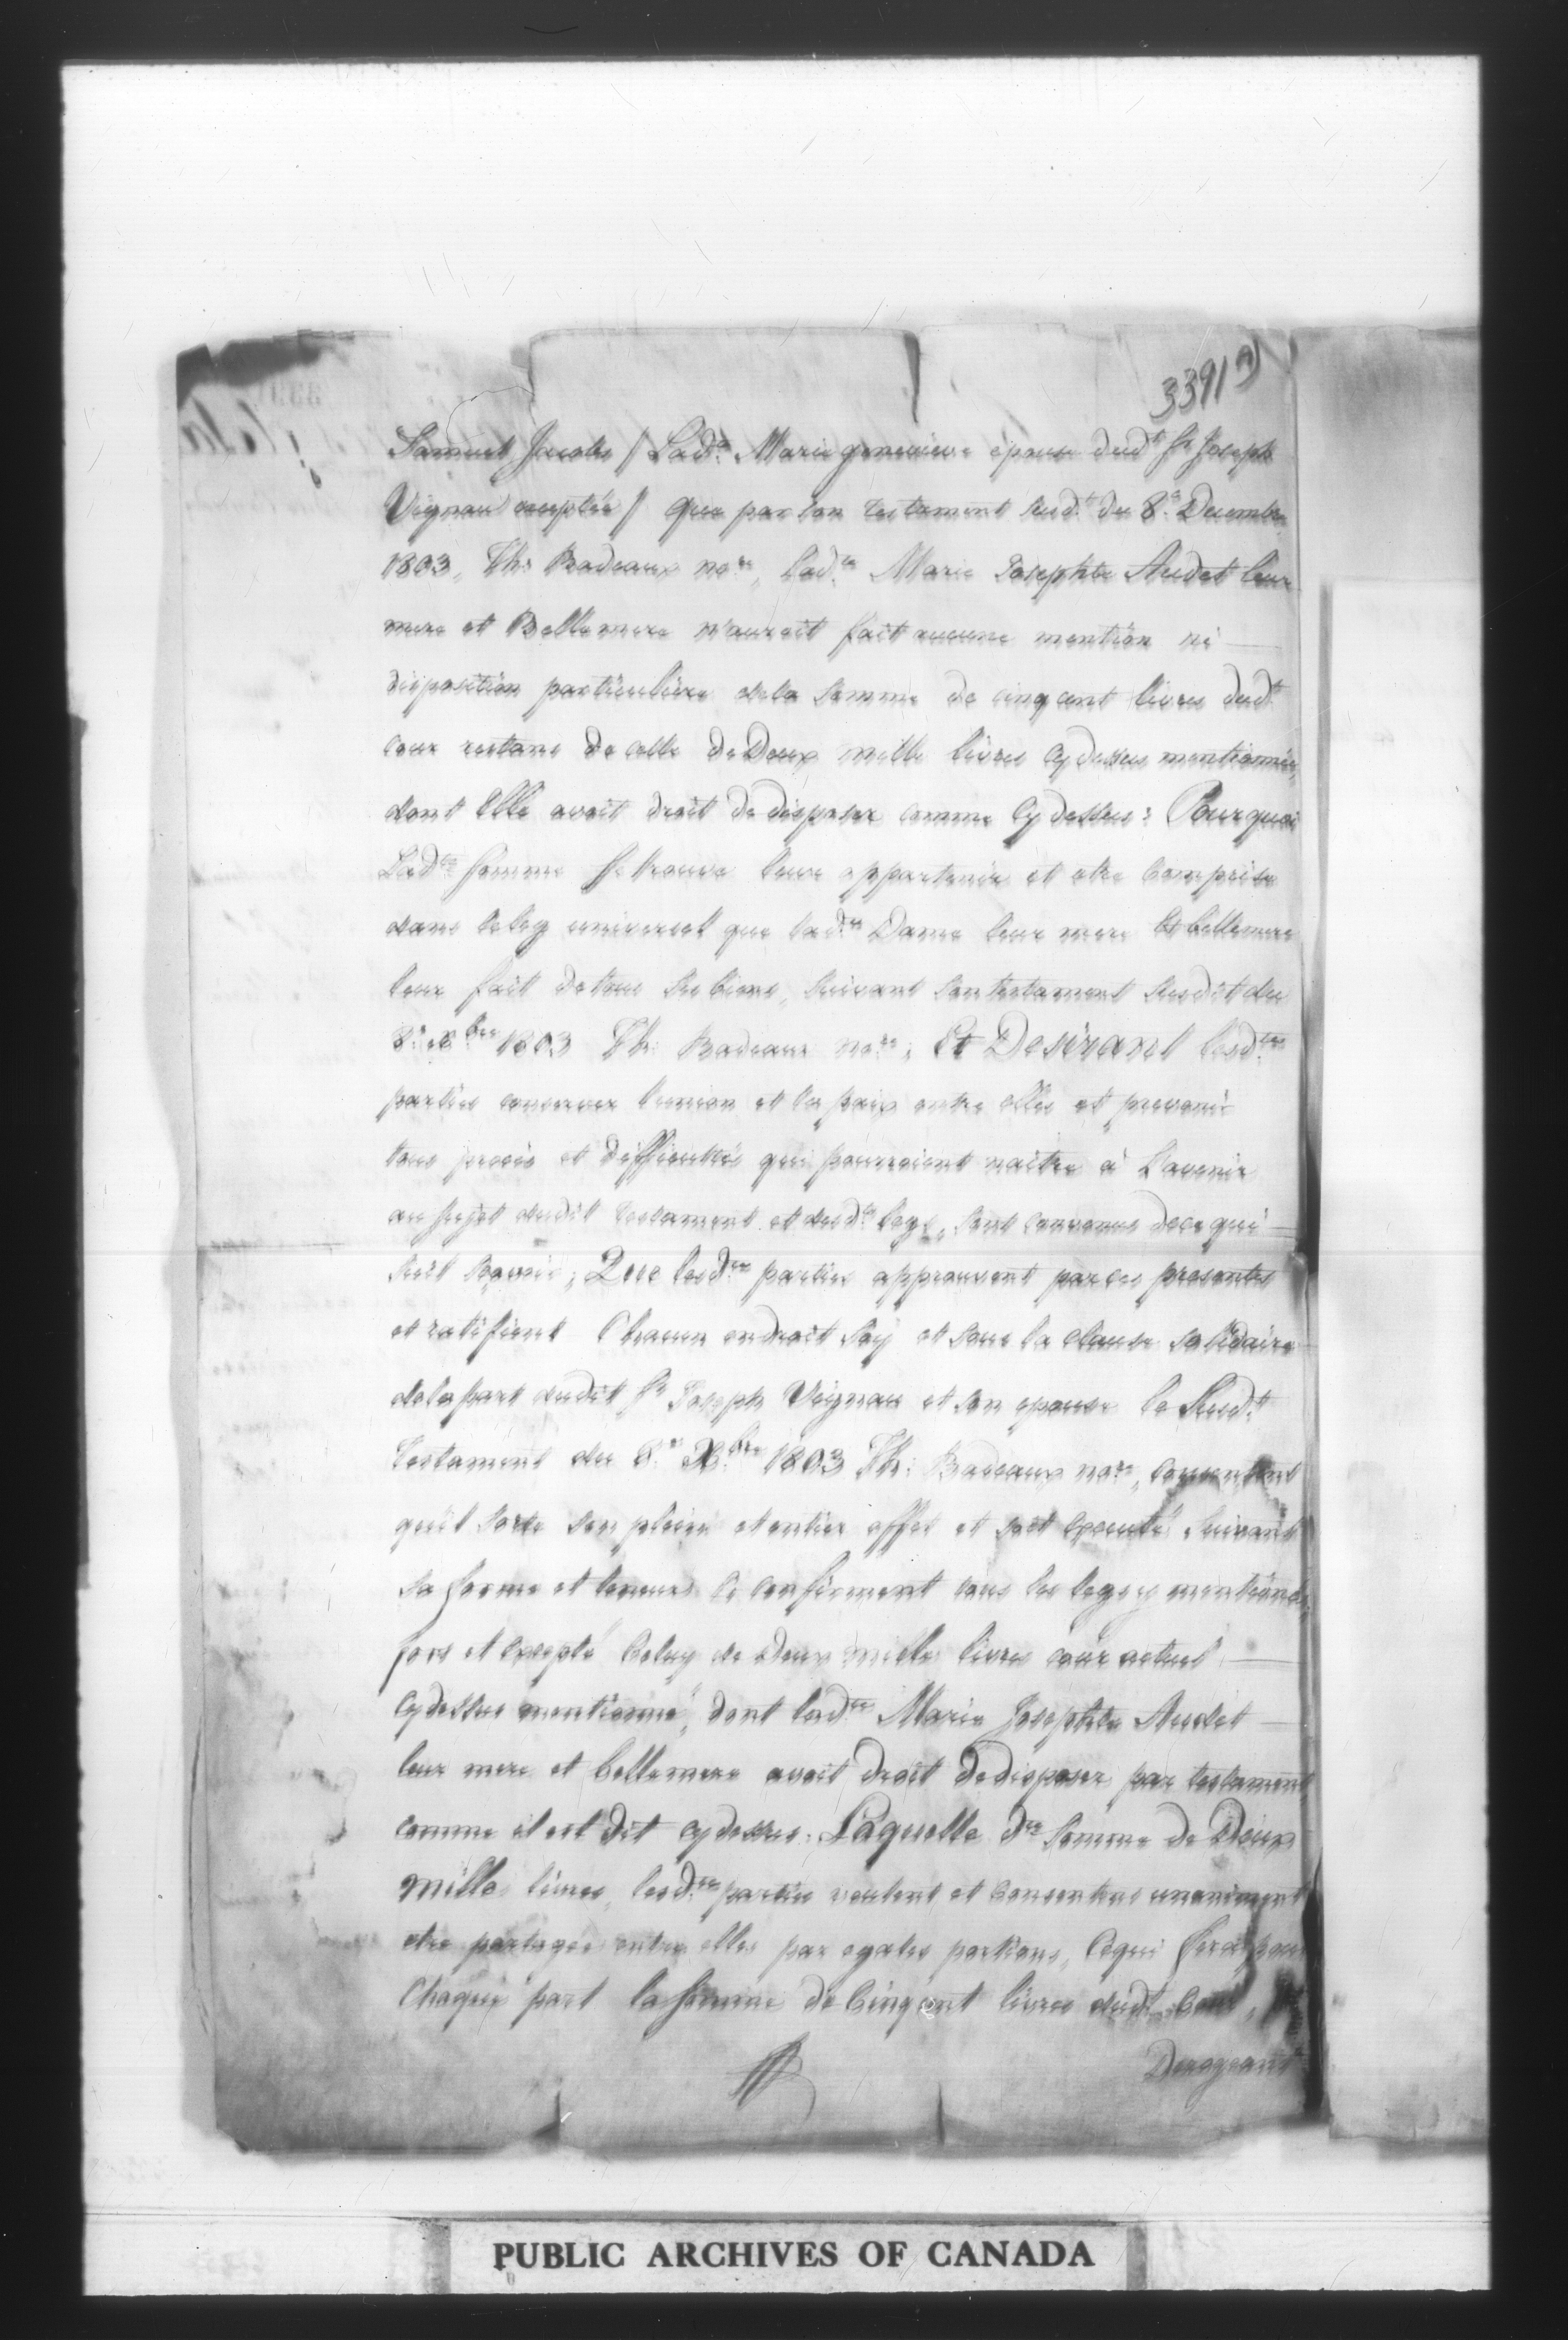 3391 a)
Samuel Jacobs / Lad.te Marie genevieve épouse dud.t Sr. Joseph
Vignau exceptée / que par son testament susd.t du 8.e Decembre
1803, Th: Badeaux no.re, lad.te Marie Josephte Audet leur
mere et Bellemere n'auroit fait aucune mention ni
disposition particulière de la somme de cinq cent livres dud.t
cour restans de celle de Deux mille livres cy dessus mentionnée,
dont Elle avoit droit de disposer comme cy dessus: Pourquoi
Lad.te somme se trouve leur appartenir et etre comprise
dans le leg universel que lad.te Dame leur mere et bellemere
leur fait de tous ses biens, suivant son testament susdit du
8.e Xbre 1803 Th: Badeaux no.re; Et Desirant lesd.tes
parties conserver l'union et la paix entre elles et prevenir
tous procès et difficultés qui pourroient naitre à l'avenir
au sujet dudit testament et dud.t legs, sont convenus de ce qui
suit Savoir; Que lesd.tes parties approuvent par ces presentes
et ratifient Chacun en droit Soy et sous la clause solidaire
de la part dudit Sr. Joseph Vignau et son epouse le susd.t
testament du 8.e Xbre 1803 Th: Badeaux no.re, consentent
qu'il sorte son plein et entier effet et soit executé suivant
sa forme et teneur & confirment tous les legs y mentionés
fors et excepté Celuy de Deux mille livres cour actuel
cy dessus mentionné, dont lad.te Marie Josephte Audet
leur mere et bellemere avoit droit de disposer par testament
comme il est dit cy dessus. Laquelle d.te somme de Deux
mille livres, lesd.tes parties veulent et consentent unaniment
etre partagée entre elles par egales portions, Ce qui fera pour
Chaque part la somme de Cinq cent livres dud.t Cour,
Derogeant
PUBLIC ARCHIVES OF CANADA